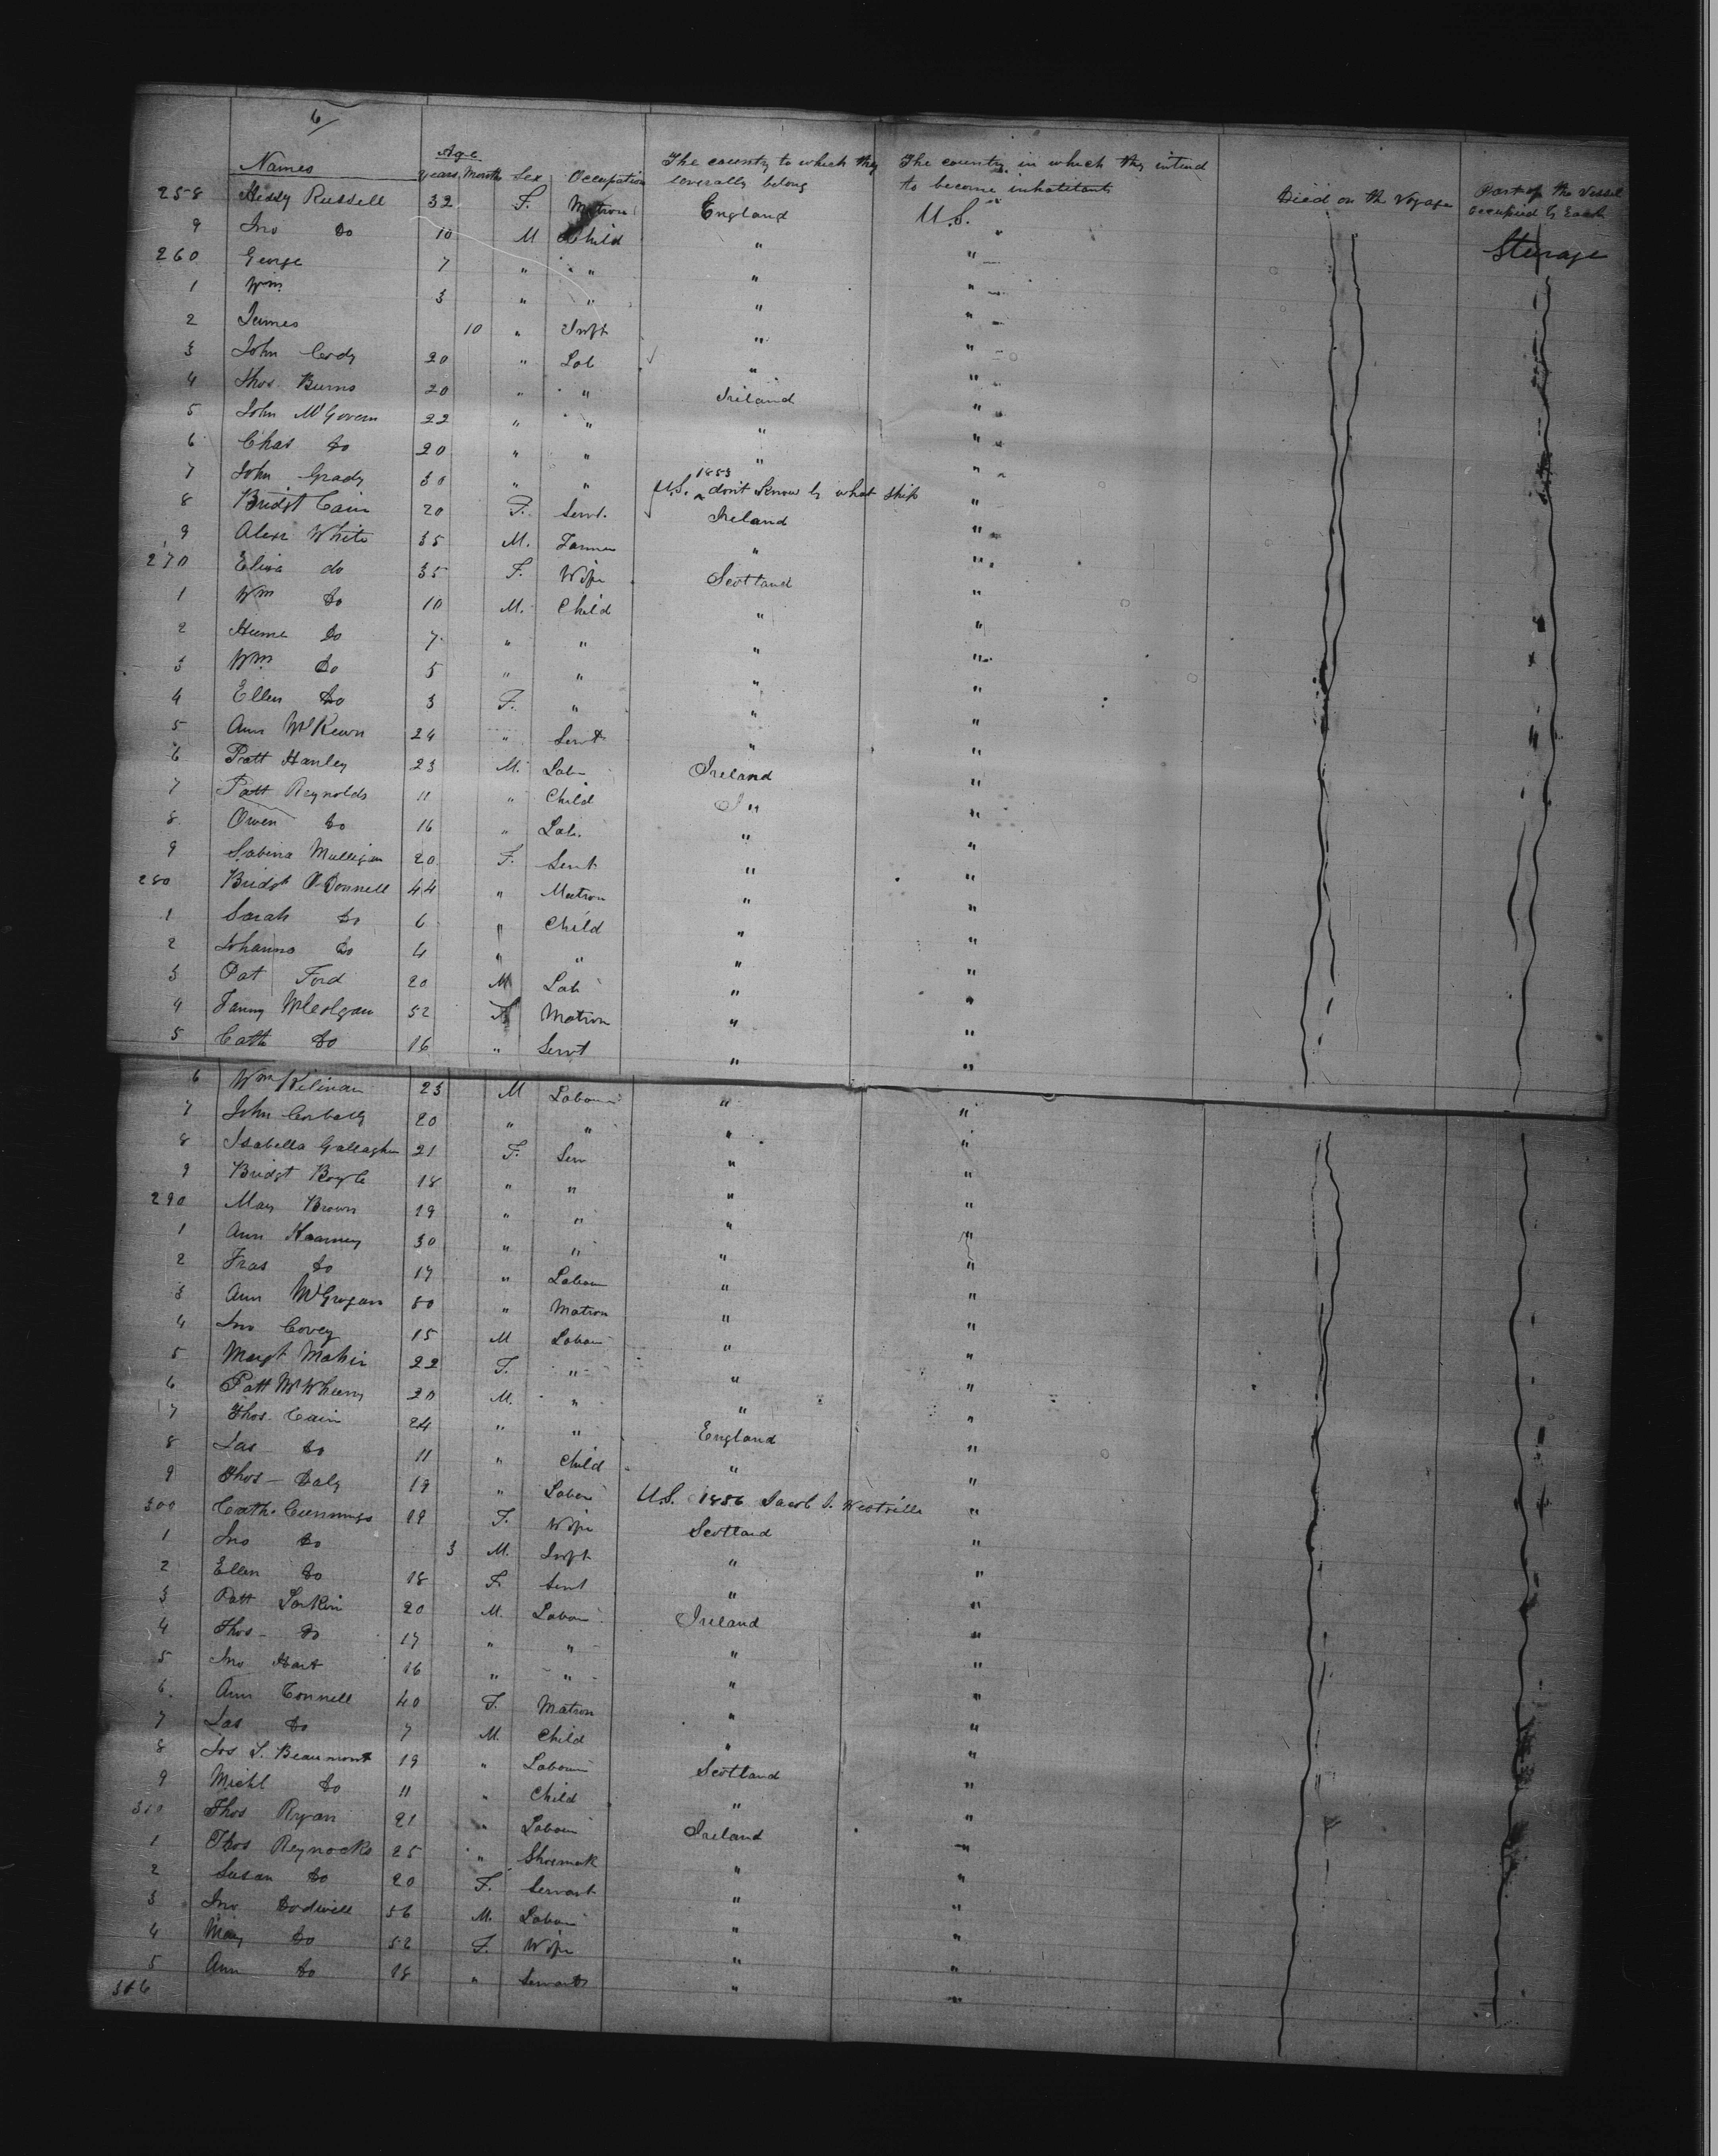 6/
Names Age Years Months Sex Occupation The country to which they severally belong The country in which they intend to become inhabitants Died on the Voyage Part of the Vessel occupied by Each
258 Hessy Russell 32 F. Matron England U.S. Sterage
9 Jno Do 10 M Child " "
260 George 7 " " " "
1 Wm 3 " " " "
2 James 10 " Inft " "
3 John 20 " Lab " "
4 Thos Burns 20 " " Ireland "
5 John McGovern 22 " " " "
6 Chas Do 20 " " " "
7 John Grady 30 " " U.S. 1853 don't know by what ship "
8 Bridgt Cain 20 F. Servt. Ireland "
9 Alexr White 35 M. Farmer " "
270 Eliza do 35 F. Wife Scotland "
1 Wm Do 10 M. Child " "
2 Hume Do 7 " " " "
3 Wm Do 5 " " " "
4 Ellen Do 3 F. " " "
5 Ann McKewn 24 " Servt " "
6 Patt Hanley 23 M. Labr Ireland "
7 Patt Reynolds 11 " Child " "
8 Owen Do 16 " Lab. " "
9 Sabina Mulligan 20 F. Servt " "
280 Bridgt O'Donnell 44 " Matron " "
1 Sarah Do 6 " Child " "
2 Johanna Do 4 " " " "
3 Pat Ford 20 M Lab " "
4 Fanny McColgan 52 F Matron " "
5 Cath Do 16 " Servt " "
6 Wm 23 M Labour " "
7 John Corbally 20 " " " "
8 Isabella Gallagher 21 F. Ser " "
9 Bridgt Boyle 18 " " " "
290 Mary Brown 19 " " " "
1 Ann Kearney 30 " " " "
2 Fras Do 17 " Labour " "
3 Ann McGrogan 50 " Matron " "
4 Jno Covey 15 M Labour " "
5 Margt Maher 22 F. " " "
6 Patt 20 M. " " "
7 Thos. Cain 24 " " England "
8 Jas Do 11 " Child " "
9 Thos Daly 19 " Labour U.S. 1856 Jacob A. Westville "
300 Cath. Cummings 19 F. Wife Scotland "
1 Jno Do 3 M. Inft " "
2 Ellen Do 18 F. Servt " "
3 Patt Larkin 20 M. Labour Ireland "
4 Thos Do 17 " " " "
5 Jno Hart 16 " " " "
6 Ann Connell 40 F. Matron " "
7 Jas Do 7 M. Child " "
8 Jos S. Beaumont 19 " Labour Scotland "
9 Michl Do 11 " Child " "
310 Thos Ryan 21 " Labour Ireland "
1 Thos 25 " Shoemak " "
2 Susan Do 20 F. Servant " "
3 Jno Bodwell 56 M. Labour " "
4 Mary Do 52 F. Wife " "
5 Ann Do 18 " Servant " "
316